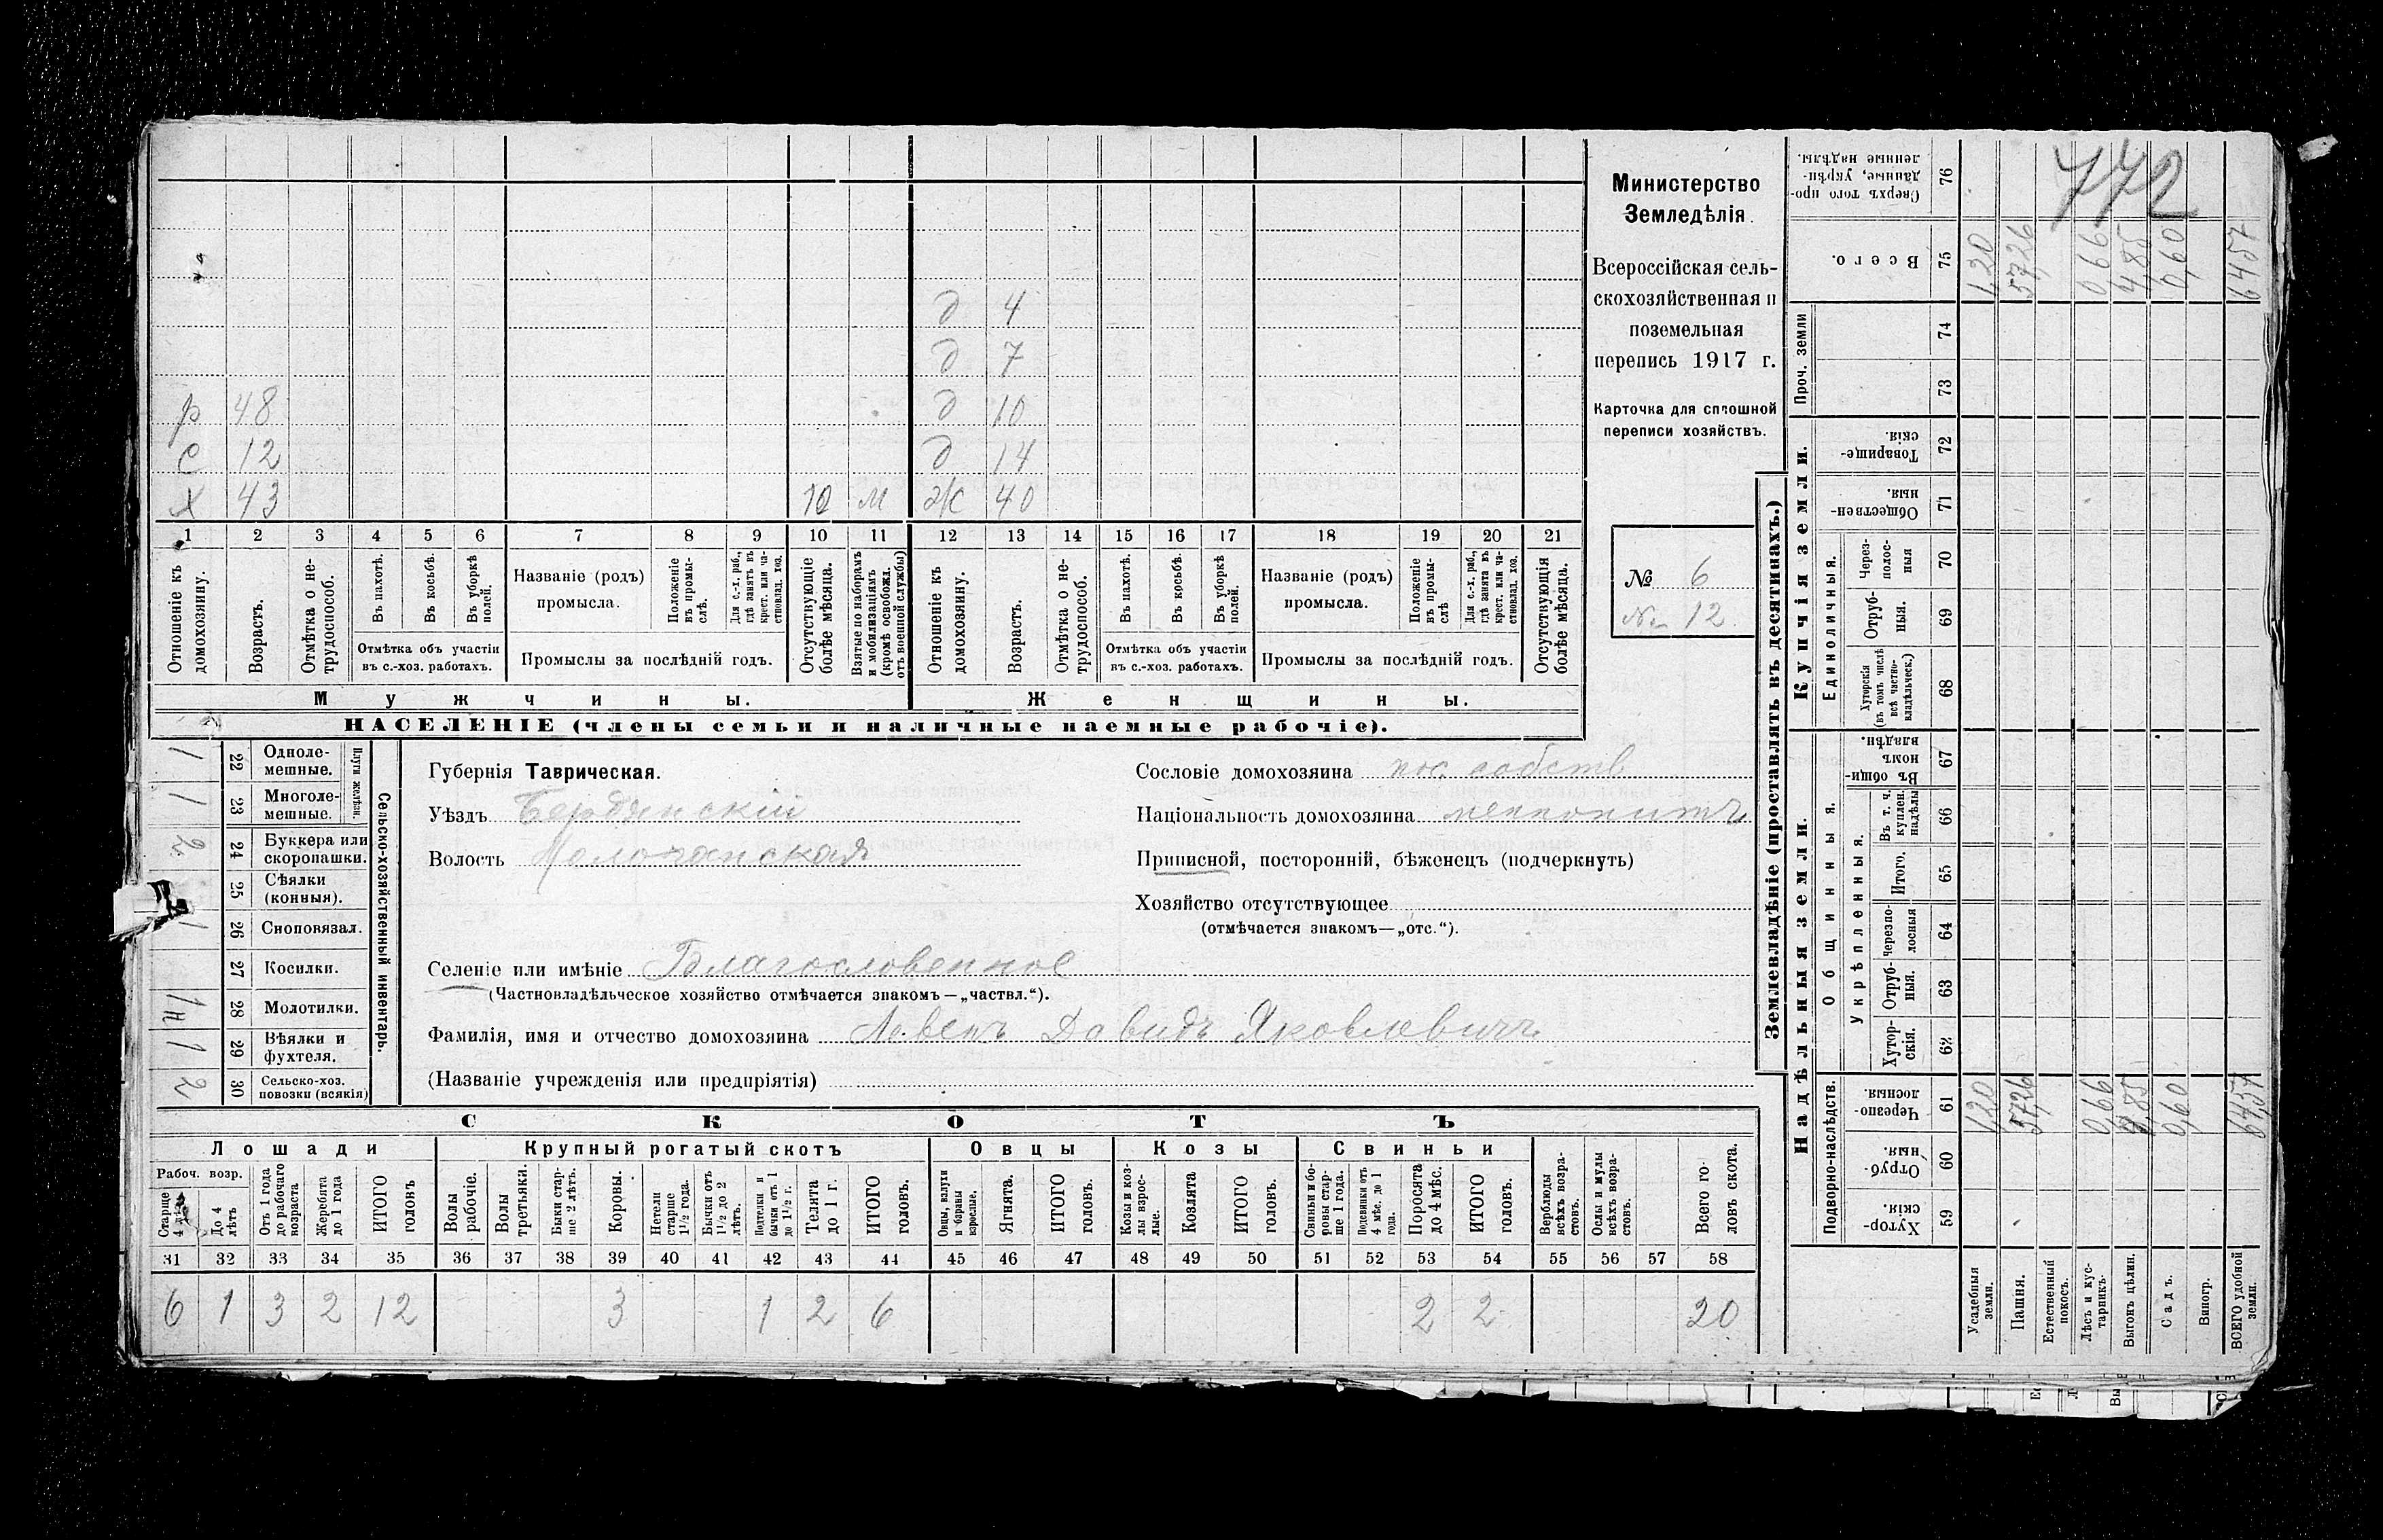 Министерство
Земледѣлія.
Всероссійская сель-
скохозяйственная и
поземельная
перепись 1917 г.
Карточка для сплошной
переписи хозяйствъ.
№ 6
№ 12
д 4
д 7
р 48 д 10
с 12 д 14
х 43 10 м ж 40
1 2 3 4 5 6 7 8 9 10 11 12 13 14 15 16 17 18 19 20 21
Отношеніе къ домохозяину.
Возрастъ.
Отмѣтка о не-трудоспособ.
Въ пахотѣ.
Въ косьбѣ.
Въ уборкѣ полей.
Отмѣтка объ участіи
въ с.-хоз. работахъ.
Названіе (родъ)
промысла.
Положеніе въ промы-слѣ.
Для с.-х. раб., гдѣ занятъ въ крест. или ча-стновлад. хоз.
Промыслы за послѣдній годъ.
Отсутствующіе болѣе мѣсяца.
Взятые по наборамъ и мобилизаціямъ (кромѣ освобожд. отъ военной службы)
Отношеніе къ домохозяину.
Возрастъ.
Отмѣтка о не-трудоспособ.
Въ пахотѣ.
Въ косьбѣ.
Въ уборкѣ полей.
Отмѣтка объ участіи
въ с.-хоз. работахъ.
Названіе (родъ)
промысла.
Положеніе въ промы-слѣ
Для с.-х. раб., гдѣ занята въ крест. или ча-стновлад. хоз.
Промыслы за послѣдній годъ.
Отсутствующія болѣе мѣсяца.
Мужчины.
Женщины.
НАСЕЛЕНІЕ (члены семьи и наличные наемные рабочіе).
1 22 Одноле-мешные.
1 23 Многоле-мешные.
Плуги желѣзн.
2 24 Буккера или скоропашки.
25 Сѣялки (конныя).
1 26 Сноповязал.
27 Косилки.
28 Молотилки.
1 29 Вѣялки и фухтеля.
2 30 Сельско-хоз. повозки (всякія)
Сельско-хозяйственный инвентарь.
Губернія Таврическая.
Уѣздъ Бердянскій
Волость Молочанская
Сословіе домохозяина пос. собств
Національность домохозяина меннонитъ
Приписной, посторонній, бѣженецъ (подчеркнуть)
Хозяйство отсутствующее
(отмѣчается знакомъ—„отс.“).
Селеніе или имѣніе Благословенное
(Частновладѣльческое хозяйство отмѣчается знакомъ—„частвл.“).
Фамилія, имя и отчество домохозяина Левенъ Давидъ Яковлевичъ
(Названіе учрежденія или предпріятія)
СКОТЪ
Лошади
Крупный рогатый скотъ
Овцы
Козы
Свиньи
Рабоч. возр.
Старше 4 лѣтъ
До 4 лѣтъ
Отъ 1 года до рабочаго возраста
Жеребята до 1 года
ИТОГО головъ
Волы рабочіе.
Волы третьяки.
Быки стар-ше 2 лѣтъ.
Коровы.
Нетели старше 1½ года.
Бычки отъ 1½ до 2 лѣтъ.
Подтелки и бычки отъ 1 до 1½ г.
Телята до 1 г.
ИТОГО головъ.
Овцы, валухи и бараны взрослые.
Ягнята.
ИТОГО головъ.
Козы и коз-лы взрос-лые.
Козлята
ИТОГО головъ.
Свиньи и бо-ровы стар-ше 1 года.
Подсвинки отъ 4 мѣс. до 1 года.
Поросята до 4 мѣс.
ИТОГО головъ.
Верблюды всѣхъ возра-стовъ.
Ослы и мулы всѣхъ возра-стовъ.
Всего го-ловъ скота.
31 32 33 34 35 36 37 38 39 40 41 42 43 44 45 46 47 48 49 50 51 52 53 54 55 56 57 58
6 1 3 2 12 3 1 2 6 2 2 20
Землевладѣніе (проставлять въ десятинахъ.)
772
Сверхъ того про-данные, укрѣп-ленные надѣлы. 76
Всего. 75 1,20 57,26 0,66 4,85 0,60 64,57
Проч. земли
74
73
Купчія земли.
Товарище-скія. 72
Обществен-ныя. 71
Единоличныя.
Через-полос-ныя 70
Отруб-ныя. 69
Хуторскія (въ томъ числѣ всѣ частно-владѣльческ.) 68
Надѣльныя земли.
Общинныя.
Въ общи-номъ владѣн. 67
Укрѣпленныя.
Въ т. ч. куплен. надѣлы 66
Итого. 65
Черезпо-лосныя 64
Отруб-ныя. 63
Хутор-скія. 62
Подворно-наслѣдств.
Черезпо-лосныя. 61 1,20 57,26 0,66 4,85 0,60 64,57
Отруб-ныя. 60
Хутор-скія. 59
Усадебныя земли.
Пашня.
Естественный покосъ.
Лѣсъ и кус-тарникъ.
Выгонъ цѣлин.
Садъ.
Виногр.
ВСЕГО удобной земли.